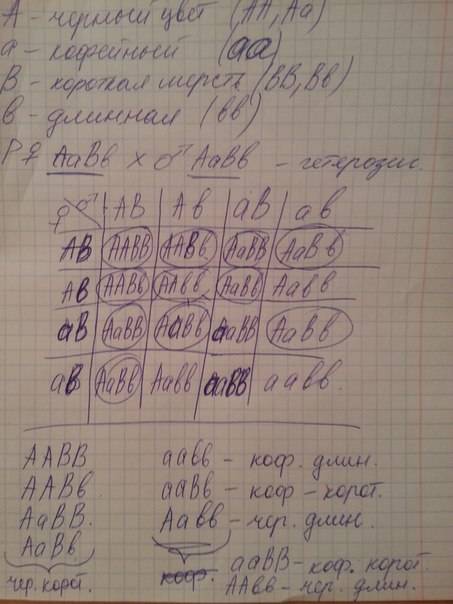 А - черный цвет (АА, Аа)
а - кофейный (аа)
В - короткая шерсть (ВВ, Вв)
в - длинная (вв)
Р ♀ АаВв × ♂ АаВв - гетерозиг.
♀ ♂ АВ Ав аВ ав
АВ ААВВ ААВв АаВВ АаВв
Ав ААВв ААвв АаВв Аавв
аВ АаВВ АаВв ааВВ АаВв
ав АаВв Аавв ааВВ аавв.
ААВВ аавв - коф. длин.
ААВв ааВв - коф - корот.
АаВВ. Аавв - чер. длин.
АаВв
чер. корот. коф. ааВВ - коф. корот.
ААвв - чер. длин.